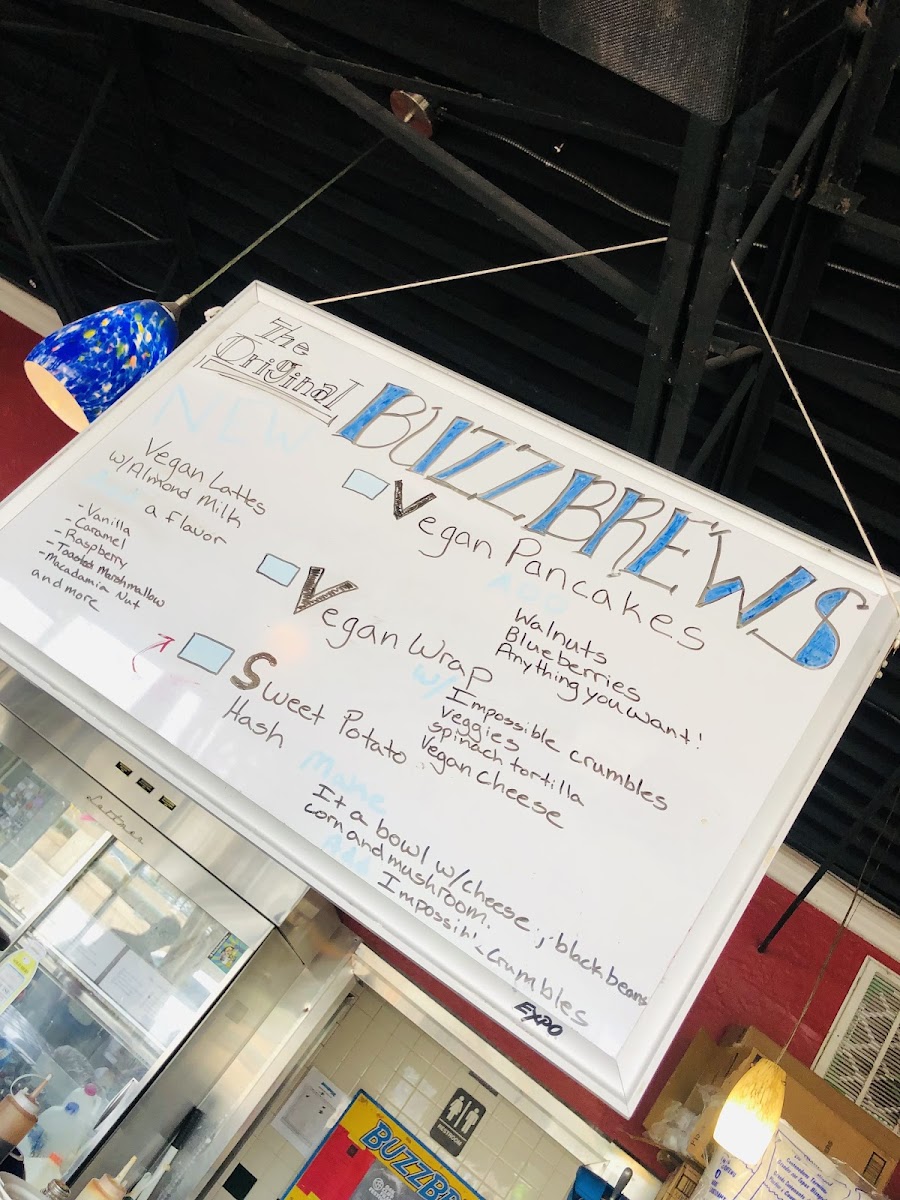 The
Original
BUZZBREWS
NEW
Vegan Lattes
w/Almond Milk
a flavor
-Vanilla
-Caramel
-Raspberry
-Toasted Marshmallow
-Macadamia Nut
and more
Vegan Pancakes
ADD
Walnuts
Blueberries
Anything you want!
Vegan Wrap
w/
Impossible crumbles
veggies
spinach tortilla
Vegan cheese
Sweet Potato
Hash
Make
It a bowl w/cheese, black beans
corn and mushroom.
Add
Crumbles
EXPO
RESTROOM